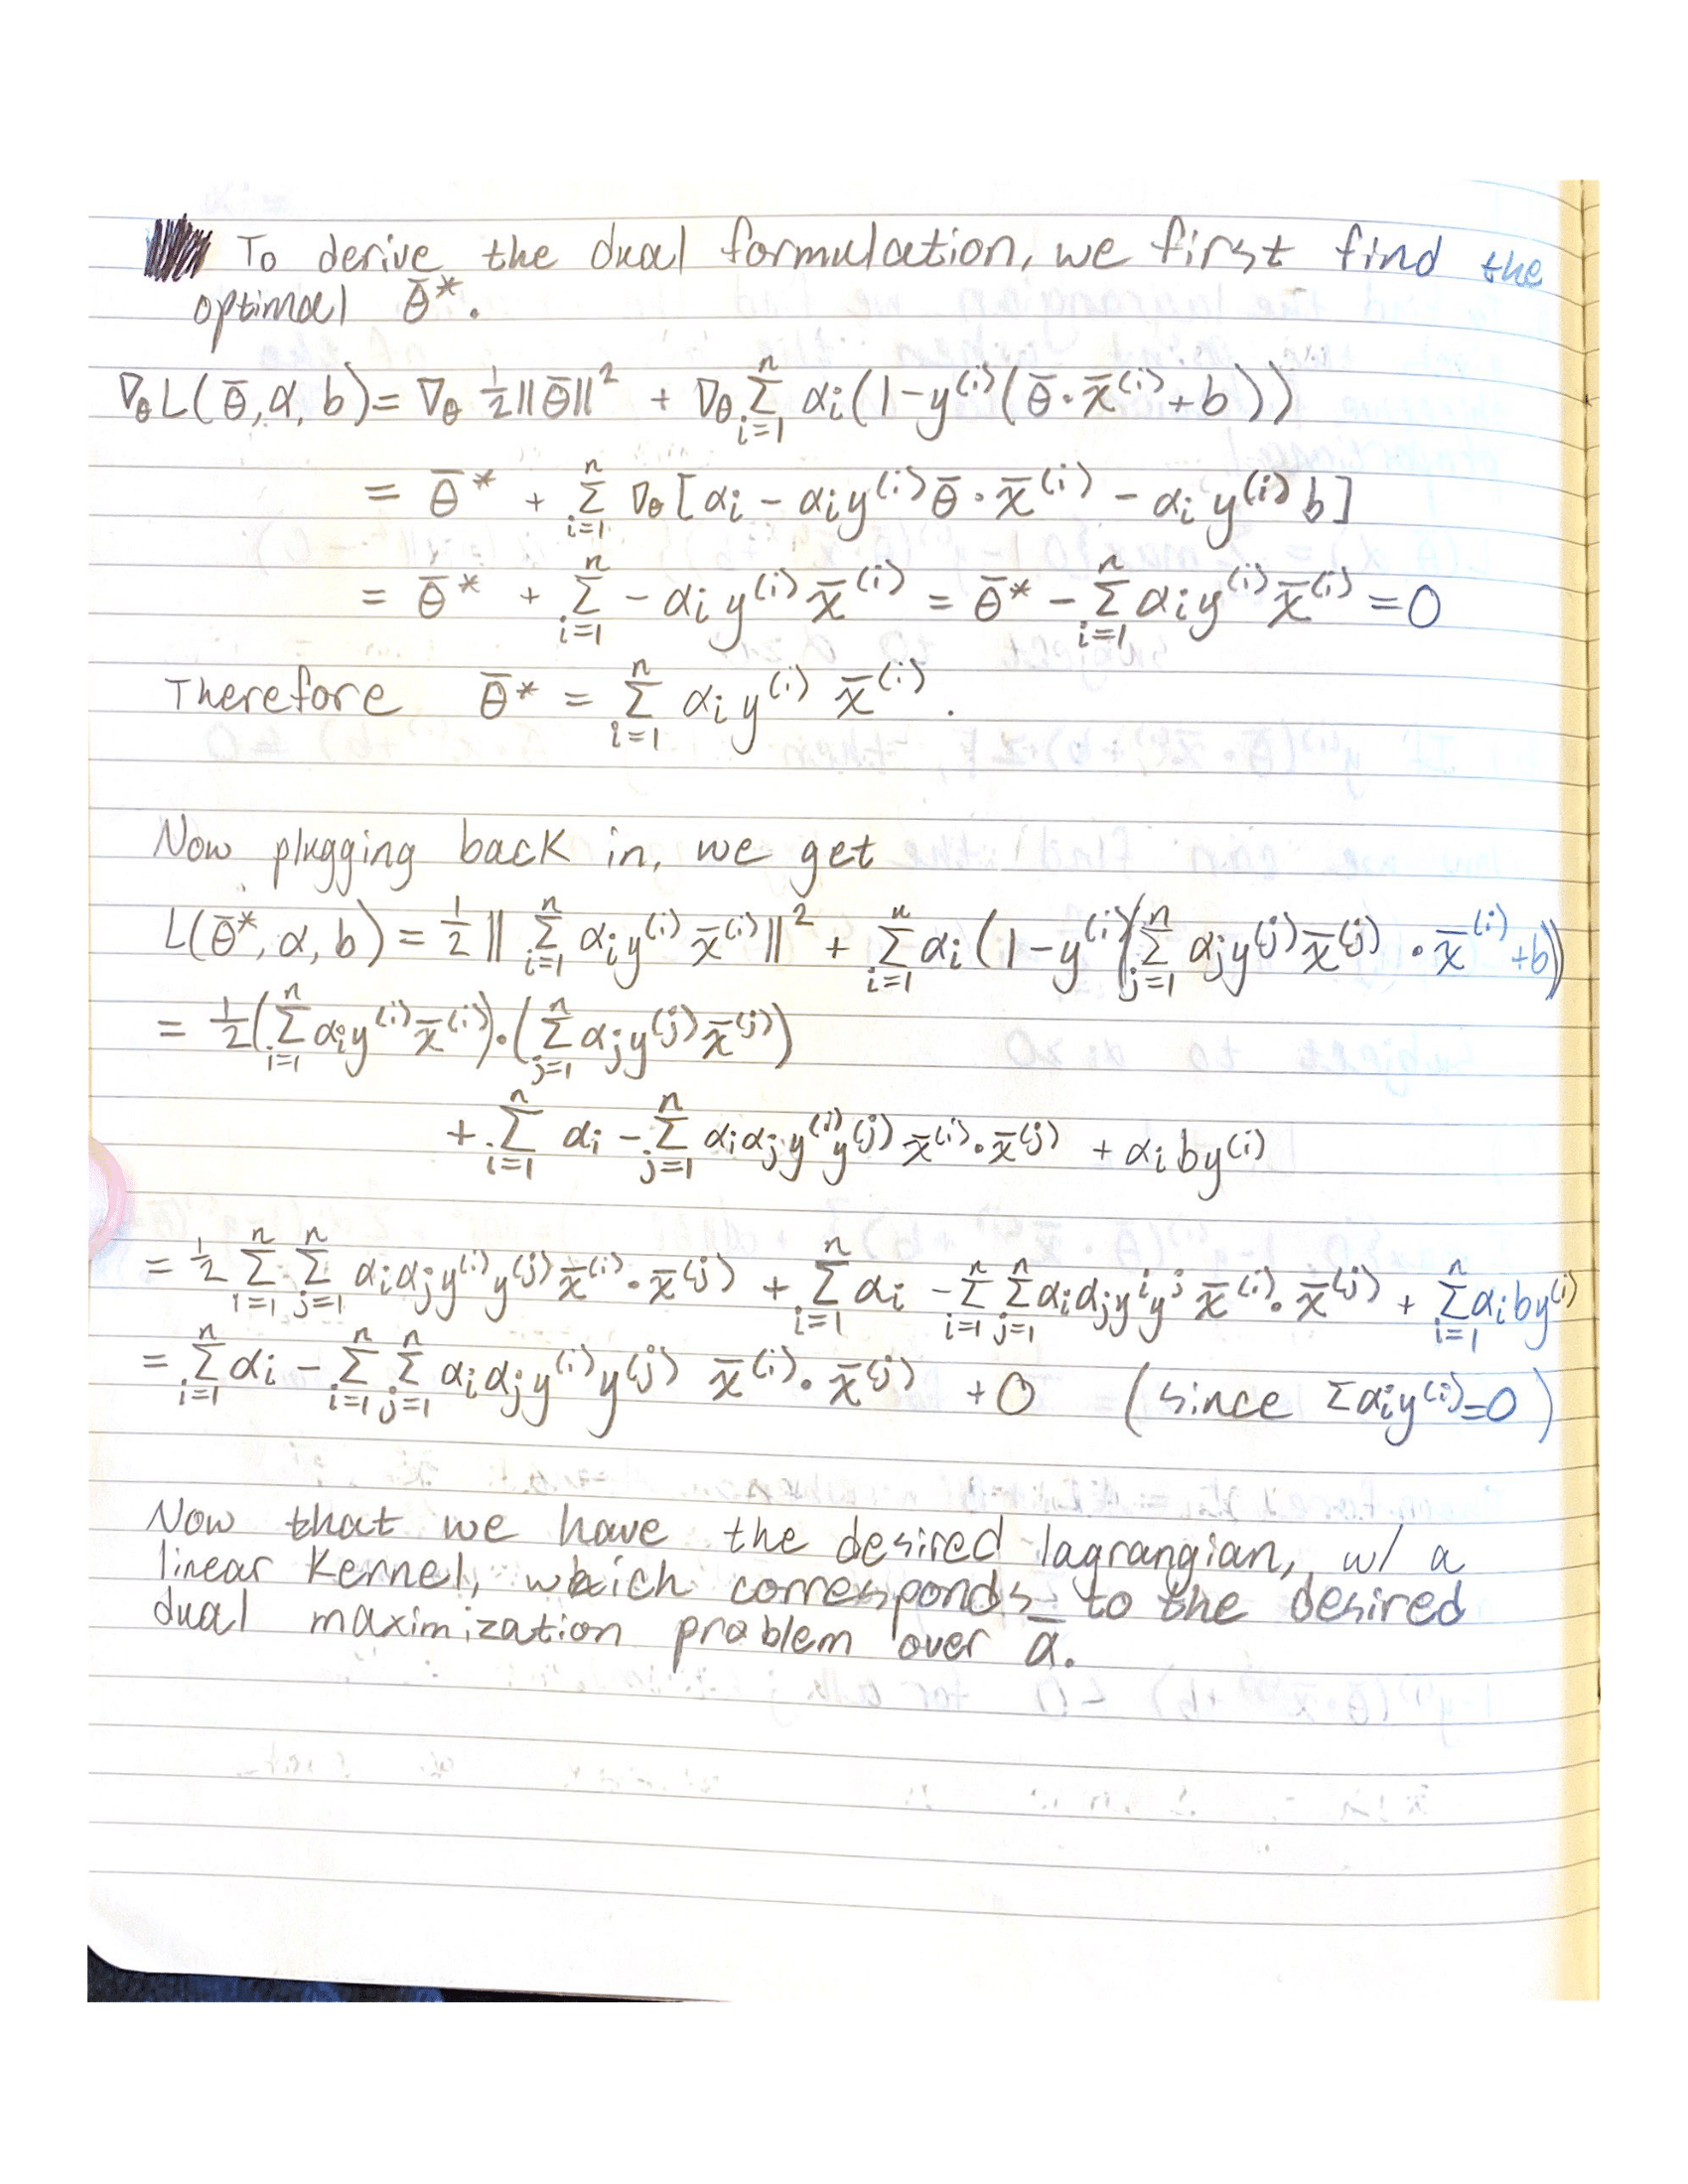 To derive the dual formulation, we first find the
optimal θ̄*.
∇θ L(θ̄, α, b) = ∇θ ½||θ̄||² + ∇θ Σ_{i=1}^{n} αi(1-y⁽ⁱ⁾(θ̄·x̄⁽ⁱ⁾+b))
= θ̄* + Σ_{i=1}^{n} ∇θ [αi - αi y⁽ⁱ⁾ θ̄·x̄⁽ⁱ⁾ - αi y⁽ⁱ⁾ b]
= θ̄* + Σ_{i=1}^{n} - αi y⁽ⁱ⁾ x̄⁽ⁱ⁾ = θ̄* - Σ_{i=1}^{n} αi y⁽ⁱ⁾ x̄⁽ⁱ⁾ = 0
Therefore θ̄* = Σ_{i=1}^{n} αi y⁽ⁱ⁾ x̄⁽ⁱ⁾.
Now plugging back in, we get
L(θ̄*, α, b) = ½ || Σ_{i=1}^{n} αi y⁽ⁱ⁾ x̄⁽ⁱ⁾ ||² + Σ_{i=1}^{n} αi (1-y⁽ⁱ⁾(Σ_{j=1}^{n} αj y⁽ʲ⁾ x̄⁽ʲ⁾ · x̄⁽ⁱ⁾ +b))
= ½(Σ_{i=1}^{n} αi y⁽ⁱ⁾ x̄⁽ⁱ⁾)·(Σ_{j=1}^{n} αj y⁽ʲ⁾ x̄⁽ʲ⁾)
+ Σ_{i=1}^{n} αi - Σ_{j=1}^{n} αi αj y⁽ⁱ⁾ y⁽ʲ⁾ x̄⁽ⁱ⁾·x̄⁽ʲ⁾ + αi b y⁽ⁱ⁾
= ½ Σ_{i=1}^{n} Σ_{j=1}^{n} αi αj y⁽ⁱ⁾ y⁽ʲ⁾ x̄⁽ⁱ⁾·x̄⁽ʲ⁾ + Σ_{i=1}^{n} αi - Σ_{i=1}^{n} Σ_{j=1}^{n} αi αj yⁱ yʲ x̄⁽ⁱ⁾·x̄⁽ʲ⁾ + Σ_{i=1}^{n} αi b y⁽ⁱ⁾
= Σ_{i=1}^{n} αi - Σ_{i=1}^{n} Σ_{j=1}^{n} αi αj y⁽ⁱ⁾ y⁽ʲ⁾ x̄⁽ⁱ⁾·x̄⁽ʲ⁾ + 0 (since Σ αi y⁽ⁱ⁾=0)
Now that we have the desired lagrangian, w/ a
linear kernel, which corresponds to the desired
dual maximization problem over ᾱ.